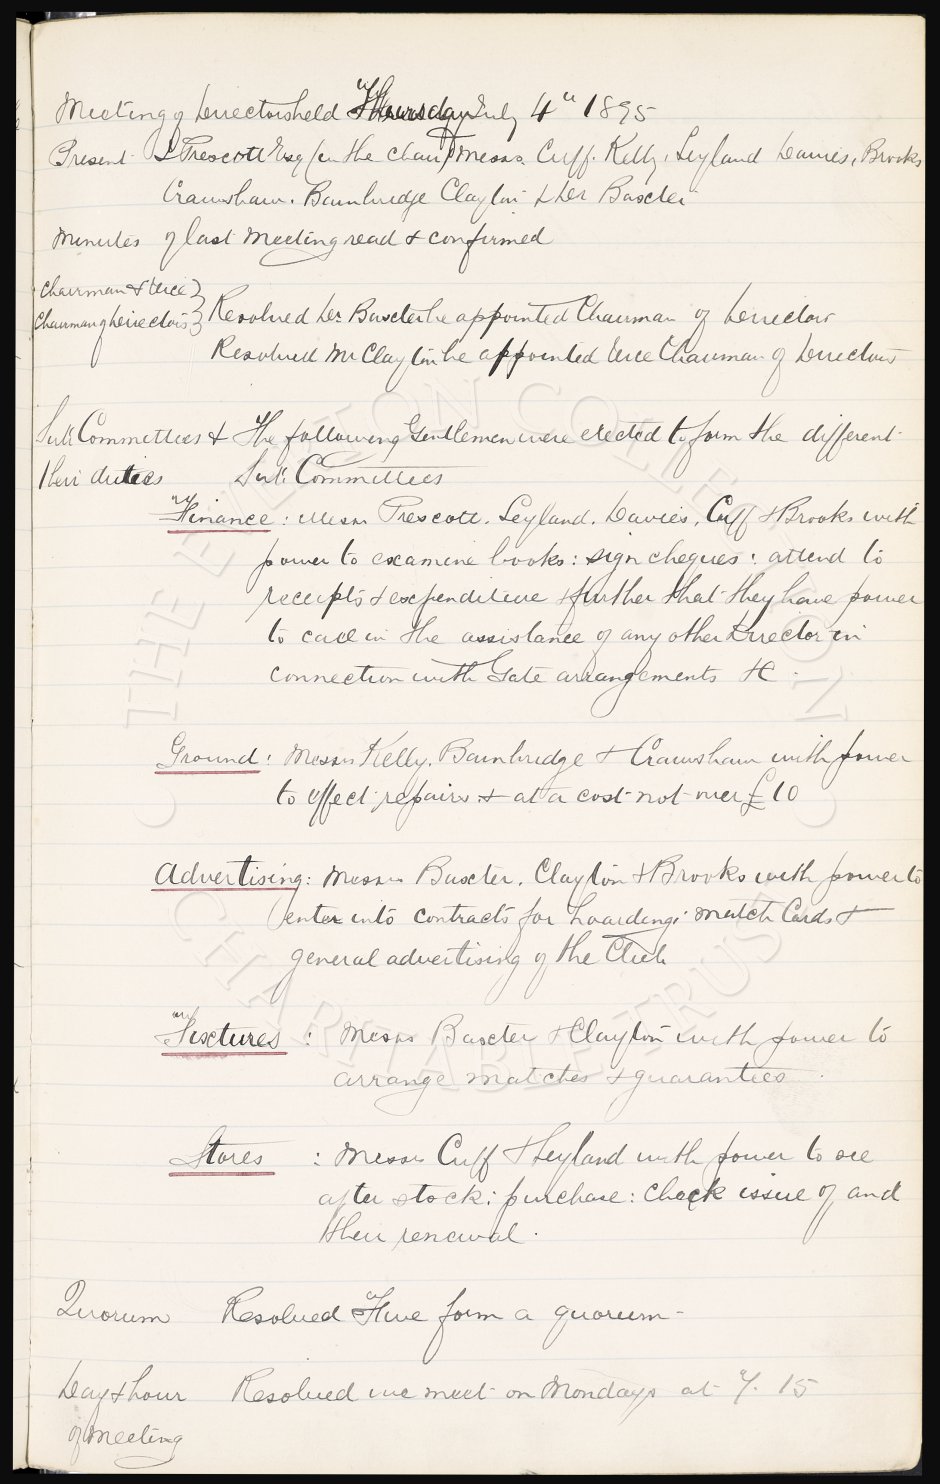 Meeting of Directors held Thursday July 4th 1895
Present J Prescott Esq (in the chair) Messrs Cuff. Kelly, Leyland Davies, Brooks
Crawshaw. Bainbridge Clayton & Dr Baxter
Minutes of last Meeting read & confirmed
Chairman & Vice
Chairman of Directors
Resolved Dr. Baxter be appointed Chairman of Directors
Resolved Mr Clayton be appointed Vice Chairman of Directors
Sub Committees & The following Gentlemen were elected to form the different
their duties Sub: Committees
Finance : Messrs Prescott. Leyland. Davies, Cuff & Brooks with
power to examine books: sign cheques: attend to
receipts & expenditure & further that they have power
to call in the assistance of any other Director in
connection with Gate arrangements &c.
Ground : Messrs Kelly. Bainbridge & Crawshaw with power
to effect repairs & at a cost not over £10
Advertising : Messrs Baxter. Clayton & Brooks with power to
enter into contracts for hoarding: match Cards &
general advertising of the Club
Fixtures : Messrs Baxter & Clayton with power to
arrange matches & guarantees.
Stores : Messrs Cuff & Leyland with power to see
after stock: purchase: check issue of, and
their renewal.
Quorum Resolved Five form a quorum
Day & hour Resolved we meet on Mondays at 7.15
of Meeting
© THE EVERTON COLLECTION
CHARITABLE TRUST